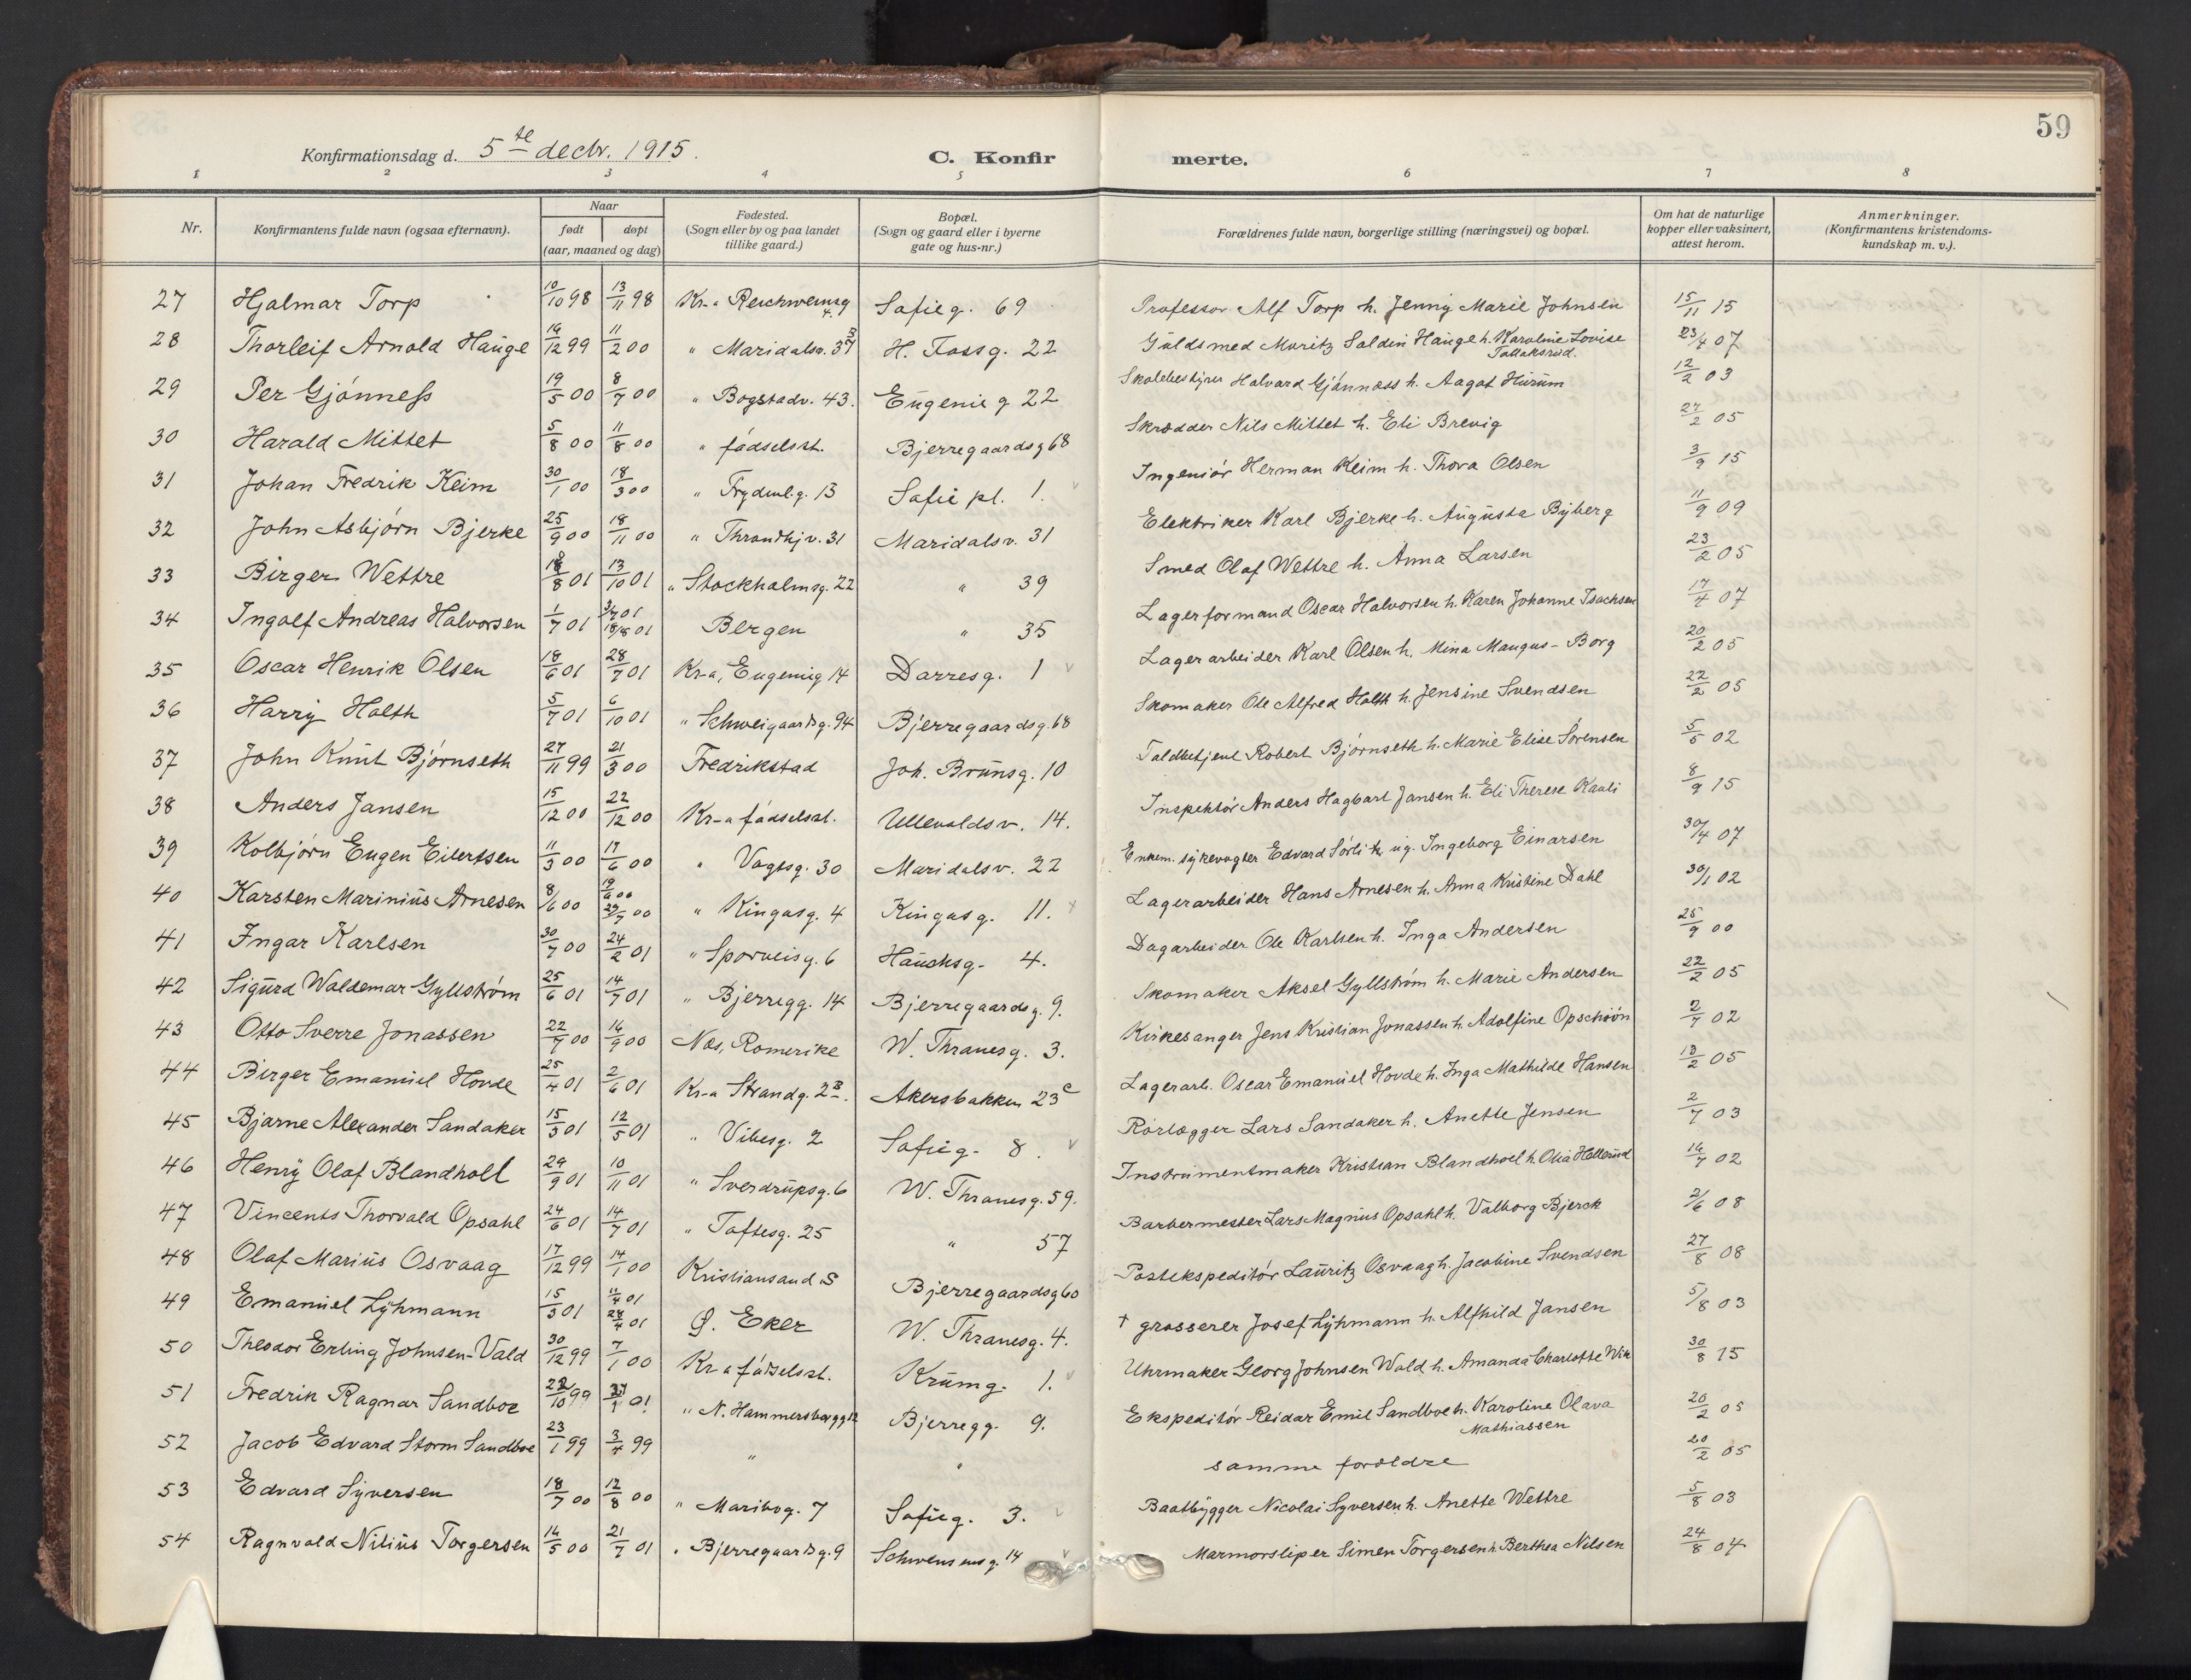 59
Konfirmationsdag d. 5te decbr. 1915.
C. Konfirmerte.
1 2 3 4 5 6 7 8
Nr. Konfirmantens fulde navn (ogsaa efternavn). Naar født døpt (aar, maaned og dag) Fødested. (Sogn eller by og paa landet tillike gaard.) Bopæl. (Sogn og gaard eller i byerne gate og hus-nr.) Forældrenes fulde navn, borgerlige stilling (næringsvei) og bopæl. Om hat de naturlige kopper eller vaksinert, attest herom. Anmerkninger. (Konfirmantens kristendoms-kundskap m. v.).
27 Hjalmar Torp 10/10 98 13/11 98 Kr-a Reichweinsg 4. Sofieg. 69 Professor Alf Torp h. Jenny Marie Johnsen 15/11 15
28 Thorleif Arnold Hauge 14/12 99 11/2 00 " Maridalsv. H. Fossg. 22 Guldsmed Moritz Saldin Hauge h. Karoline Lovise Tollaksrud. 23/4 07
29 Per Gjönness 19/5 00 8/7 00 " Bogstadv. 43. Eugenieg 22 Skolebestyrer Halvard Gjönness h. Aagot Hurum 12/2 03
30 Harald Mittet 5/8 00 11/8 00 " födselsst. Bjerregaardsg 68 Skrædder Nils Mittet h. Eli Brevig 27/2 05
31 Johan Fredrik Keim 30/1 00 18/3 00 " Frydenl.g. 13 Sofie pl. 1. Ingeniör Herman Keim h. Thora Olsen 3/9 15
32 John Asbjörn Bjerke 25/9 00 18/11 00 " Throndhjv. 31 Maridalsv. 31 Elektriker Karl Bjerke h. Augusta Byberg 11/9 09
33 Birger Wettre 18/8 01 13/10 01 " Stockholmsg. 22 " 39 Smed Olaf Wettre h. Anna Larsen 23/2 05
34 Ingolf Andreas Halvorsen 1/7 01 3/7 01 18/8 01 Bergen " 35 Lagerformand Oscar Halvorsen h. Karen Johanne Isachsen 17/4 07
35 Oscar Henrik Olsen 18/6 01 28/7 01 Kr-a, Eugenieg 14 Darresg. 1 Lagerarbeider Karl Olsen h. Mina Mangus-Borg 20/2 05
36 Harry Holth 5/7 01 6/10 01 " Schweigaardsg. 94 Bjerregaardsg. 68 Skomaker Ole Alfred Holth h. Jensine Svendsen 22/2 05
37 John Knut Björnseth 27/11 99 21/3 00 Fredrikstad Joh. Brunsg. 10 Toldbetjent Robert Björnseth h. Marie Elise Sörensen 5/5 02
38 Anders Jansen 15/12 00 22/12 00 Kr-a födselsst. Ullevoldsv. 14. Inspektör Anders Hagbart Jansen h. Eli Therese Kaali 8/9 15
39 Kolbjörn Eugen Eilertsen 11/3 00 17/6 00 " Vogtsg. 30 Maridalsv. 22 Enkem. sykevogter Edvard Sörli h. ug. Ingeborg Einarsen 30/4 07
40 Karsten Marinius Arnesen 8/6 00 19/6 00 29/7 00 " Kingosg. 4 Kingosg. 11. Lagerarbeider Hans Arnesen h. Anna Kristine Dahl 30/1 02
41 Ingar Karlsen 30/7 00 24/2 01 " Sporveisg. 6 Hauchsg. 4. Dagarbeider Ole Karlsen h. Inga Andersen 25/9 00
42 Sigurd Waldemar Gyllström 25/6 01 14/7 01 " Bjerregg. 14 Bjerregaardsg. 9. Skomaker Aksel Gyllström h. Marie Andersen 22/2 05
43 Otto Sverre Jonassen 22/7 00 16/9 00 Nes, Romerike W. Thranesg. 3. Kirkesanger Jens Kristian Jonassen h. Adolfine Opschöön 2/7 02
44 Birger Emanuel Hovde 25/4 01 2/6 01 Kr-a Strandg. 2B. Akersbakken 23c Lagerarb. Oscar Emanuel Hovde h. Inga Mathilde Hansen 13/2 05
45 Bjarne Alexander Sandaker 15/3 01 12/5 01 " Vibesg. 2 Sofieg. 8. Rörlægger Lars Sandaker h. Anette Jensen 2/7 03
46 Henry Olaf Blandholl 29/9 01 10/11 01 " Sverdrupsg. 6 W. Thranesg. 59. Instrumentmaker Kristian Blandhoel h. Olia Hellerud 16/7 02
47 Vincents Thorvald Opsahl 24/6 01 14/7 01 " Toftesg. 25 " 57 Barbermester Lars Magnus Opsahl h. Valborg Bjerck 2/6 08
48 Olaf Marius Osvaag 17/12 99 14/1 00 Kristiansand S Bjerregaardsg 60 Postekspeditör Lauritz Osvaag h. Jacobine Svendsen 27/8 08
49 Emanuel Lyhmann 15/3 01 11/4 01 28/4 01 Ø. Eker W. Thranesg. 4. † grosserer Josef Lyhmann h. Alfhild Jansen 5/8 03
50 Theodor Erling Johnsen-Vald 30/12 99 7/1 00 Kr-a födselsst. Krumg. 1. Uhrmaker Georg Johnsen Wald h. Amanda Charlotte Wik 30/8 15
51 Fredrik Ragnar Sandboe 22/10 99 01 " N. Hammersborgg 12 Bjerregg. 9. Ekspeditör Reidar Emil Sandboe h. Karoline Olava Mathiassen 20/2 05
52 Jacob Edvard Storm Sandboe 23/1 99 3/4 99 " " samme forældre 20/2 05
53 Edvard Syversen 18/7 00 12/8 00 " Maribog. 7 Sofieg. 3. Baatbygger Nicolai Syversen h. Anette Wettre 5/8 03
54 Ragnvald Nilius Torgersen 16/5 00 21/7 01 " Bjerregaardsg. 9 Schwensensg. 14 Marmorsliper Simen Torgersen h. Berthea Nilsen 24/8 04